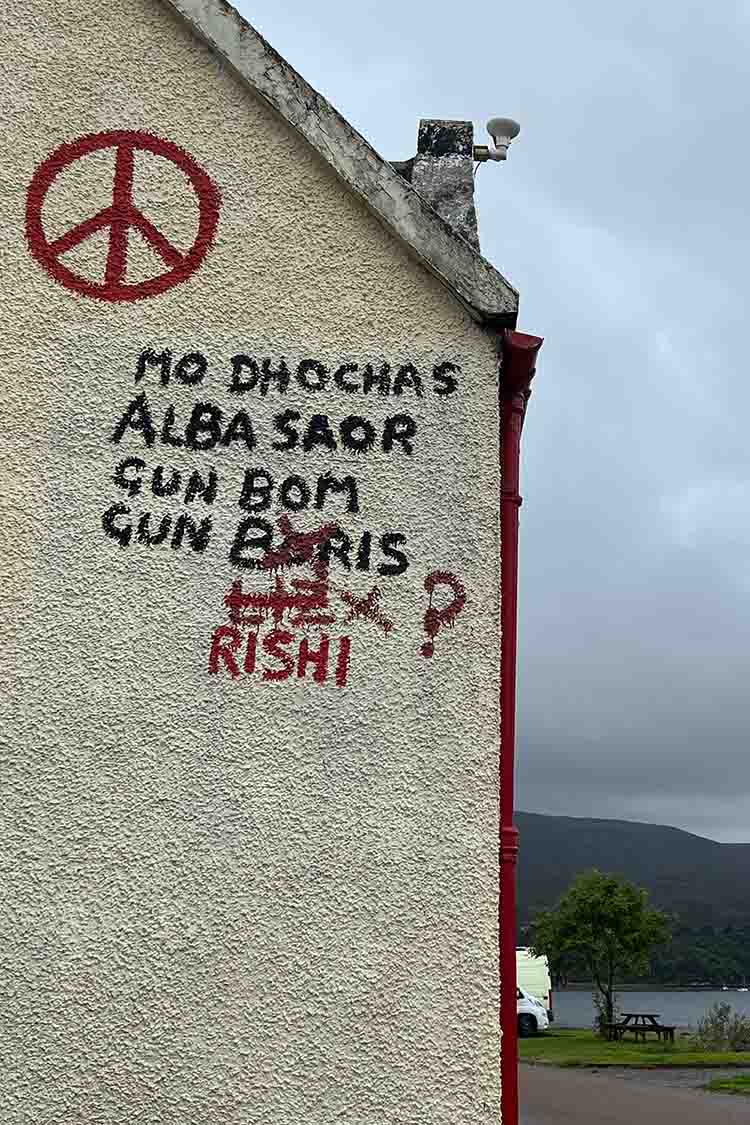 MO DHOCHAS
ALBA SAOR
GUN BOM
GUN BORIS
?
RISHI